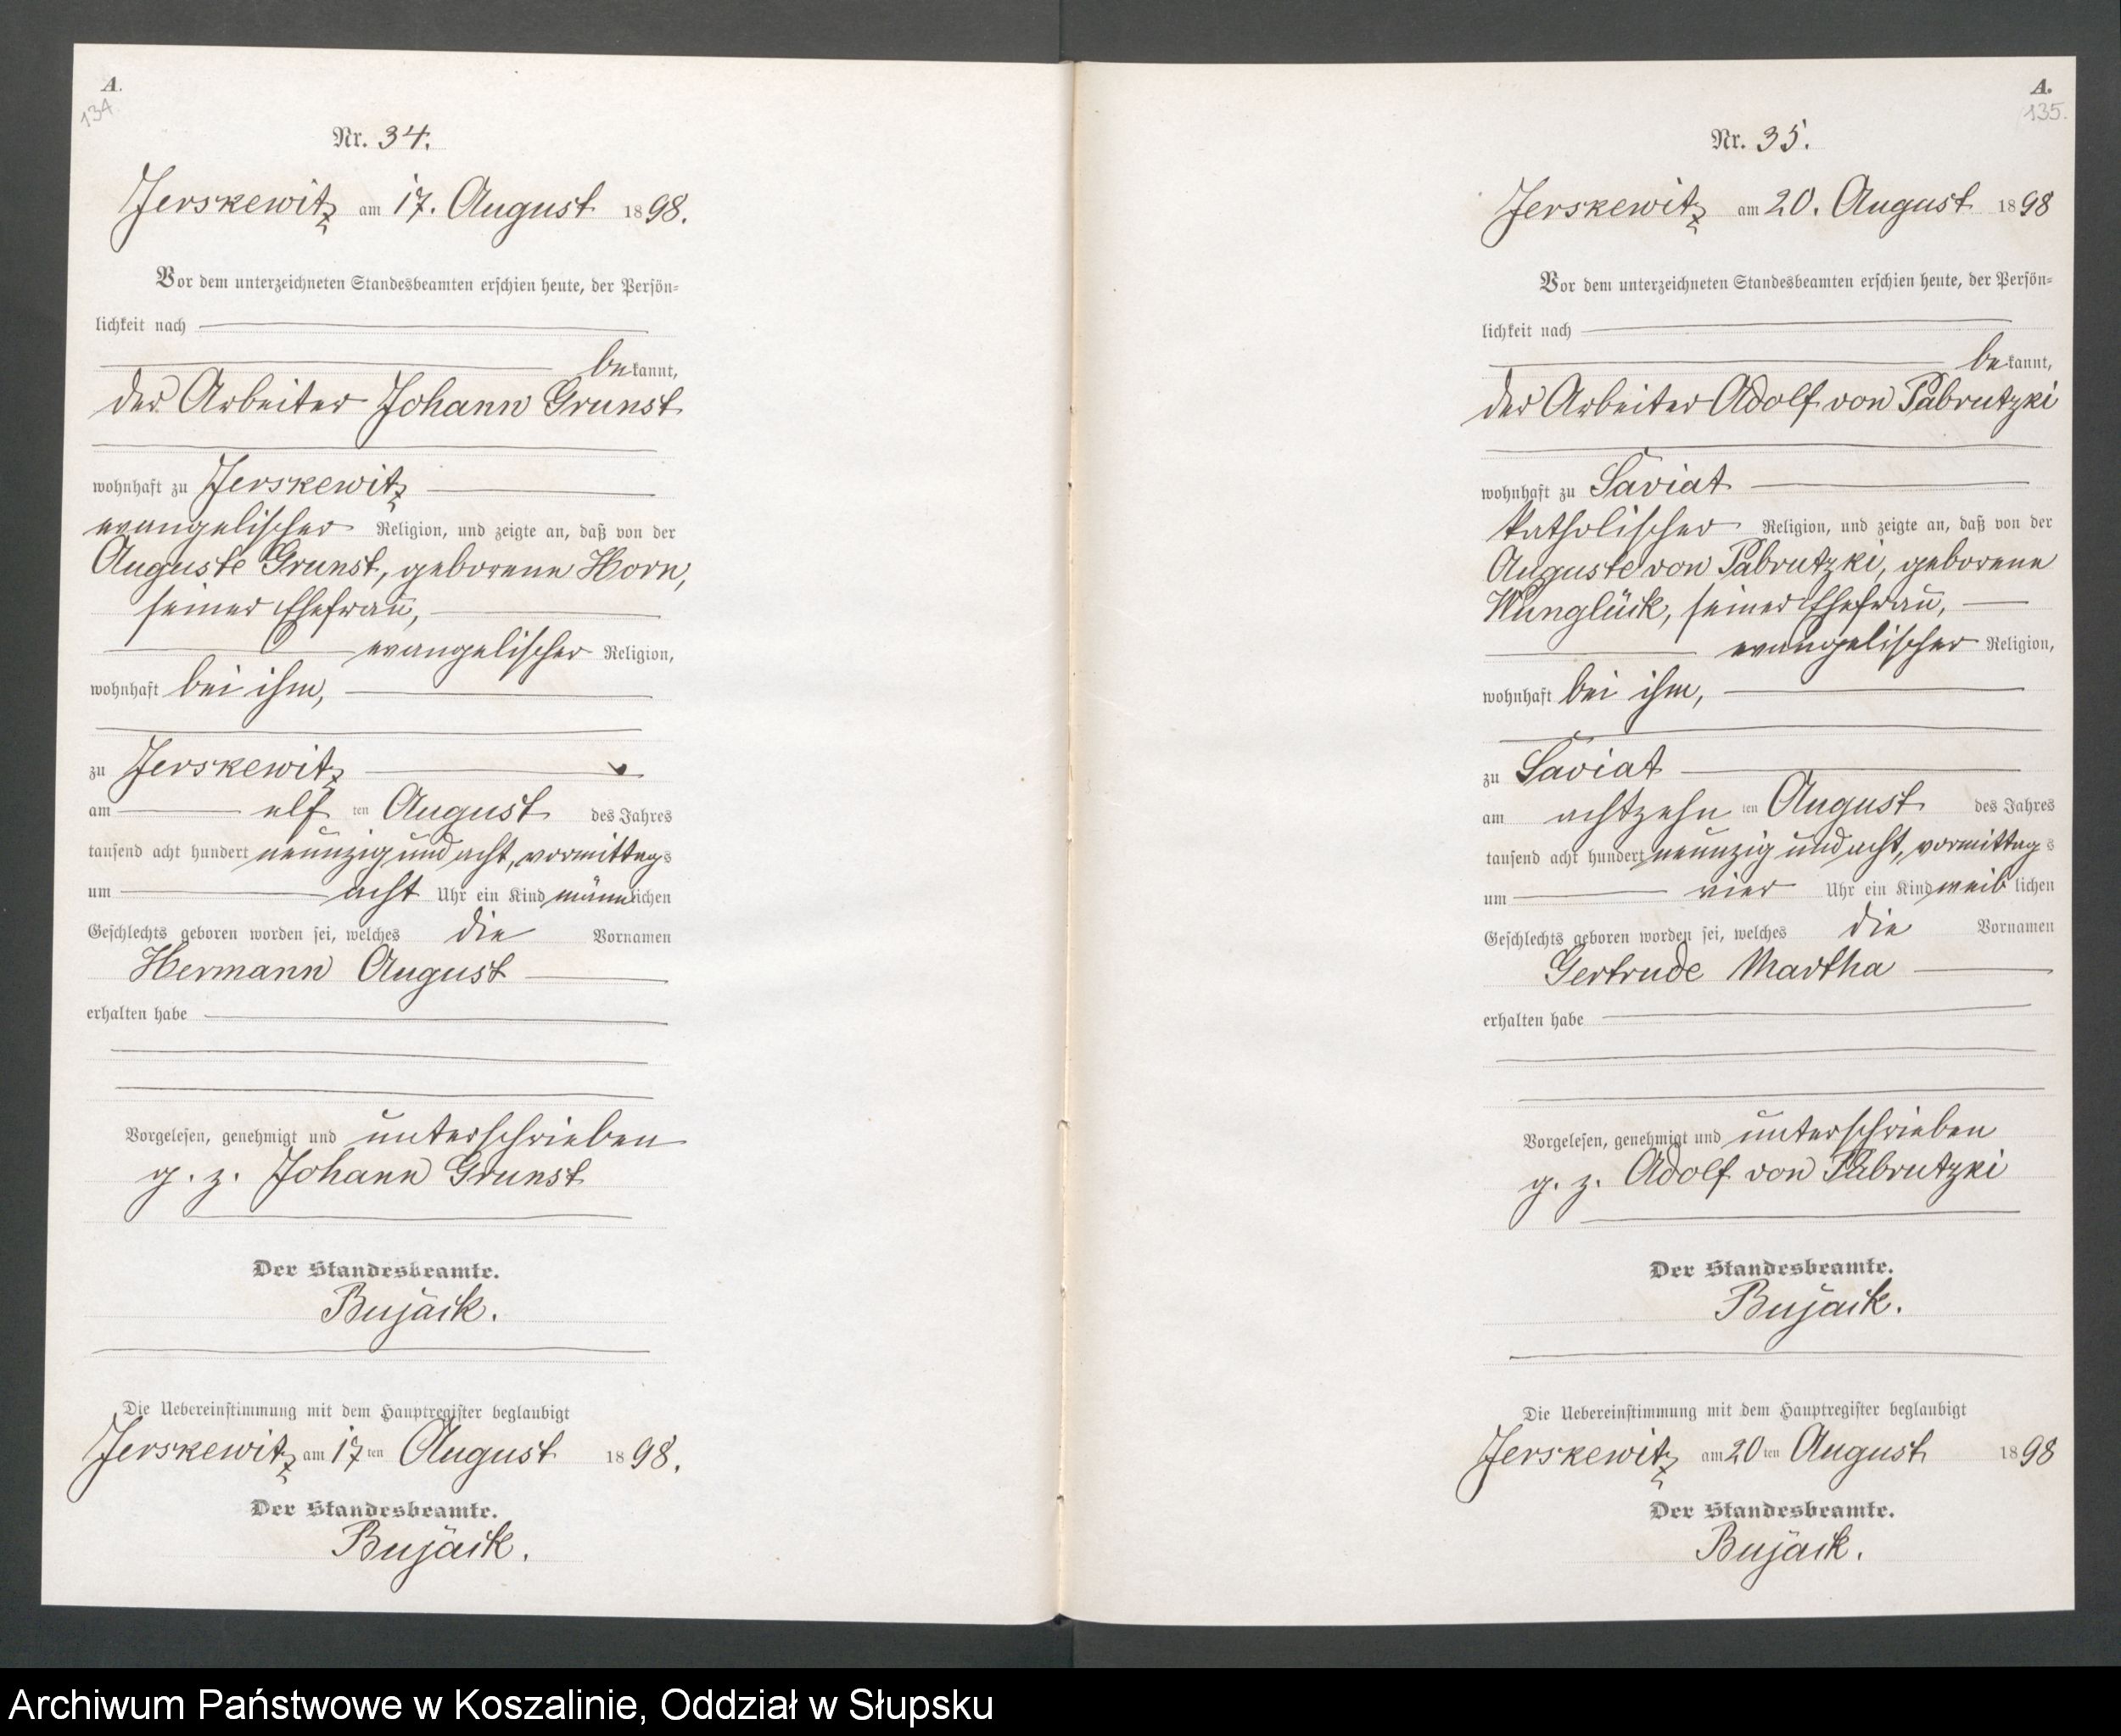 A.
134.
Nr. 34.
Jerskewitz am 17. August 1898.
Vor dem unterzeichneten Standesbeamten erschien heute, der Persön-
lichkeit nach
bekannt,
der Arbeiter Johann Grunst
wohnhaft zu Jerskewitz
evangelischer Religion, und zeigte an, daß von der
Auguste Grunst, geborene Horn,
seiner Ehefrau,
evangelischer Religion,
wohnhaft bei ihm,
zu Jerskewitz
am elf ten August des Jahres
tausend acht hundert neunzig und acht, vormittags
um acht Uhr ein Kind männlichen
Geschlechts geboren worden sei, welches die Vornamen
Hermann August
erhalten habe
Vorgelesen, genehmigt und unterschrieben
g. z. Johann Grunst
Der Standesbeamte.
Bujack.
Die Uebereinstimmung mit dem Hauptregister beglaubigt
Jerskewitz am 17ten August 1898.
Der Standesbeamte.
Bujack.
A.
135.
Nr. 35.
Jerskewitz am 20. August 1898
Vor dem unterzeichneten Standesbeamten erschien heute, der Persön-
lichkeit nach
bekannt,
der Arbeiter Adolf von Pabrutzki
wohnhaft zu Saviat
katholischer Religion, und zeigte an, daß von der
Auguste von Pabrutzki, geborene
Wunglück, seiner Ehefrau,
evangelischer Religion,
wohnhaft bei ihm,
zu Saviat
am achtzehn ten August des Jahres
tausend acht hundert neunzig und acht, vormittags
um vier Uhr ein Kind weiblichen
Geschlechts geboren worden sei, welches die Vornamen
Gertrude Martha
erhalten habe
Vorgelesen, genehmigt und unterschrieben
g. z. Adolf von Pabrutzki
Der Standesbeamte.
Bujack.
Die Uebereinstimmung mit dem Hauptregister beglaubigt
Jerskewitz am 20ten August 1898
Der Standesbeamte.
Bujack.
Archiwum Państwowe w Koszalinie, Oddział w Słupsku